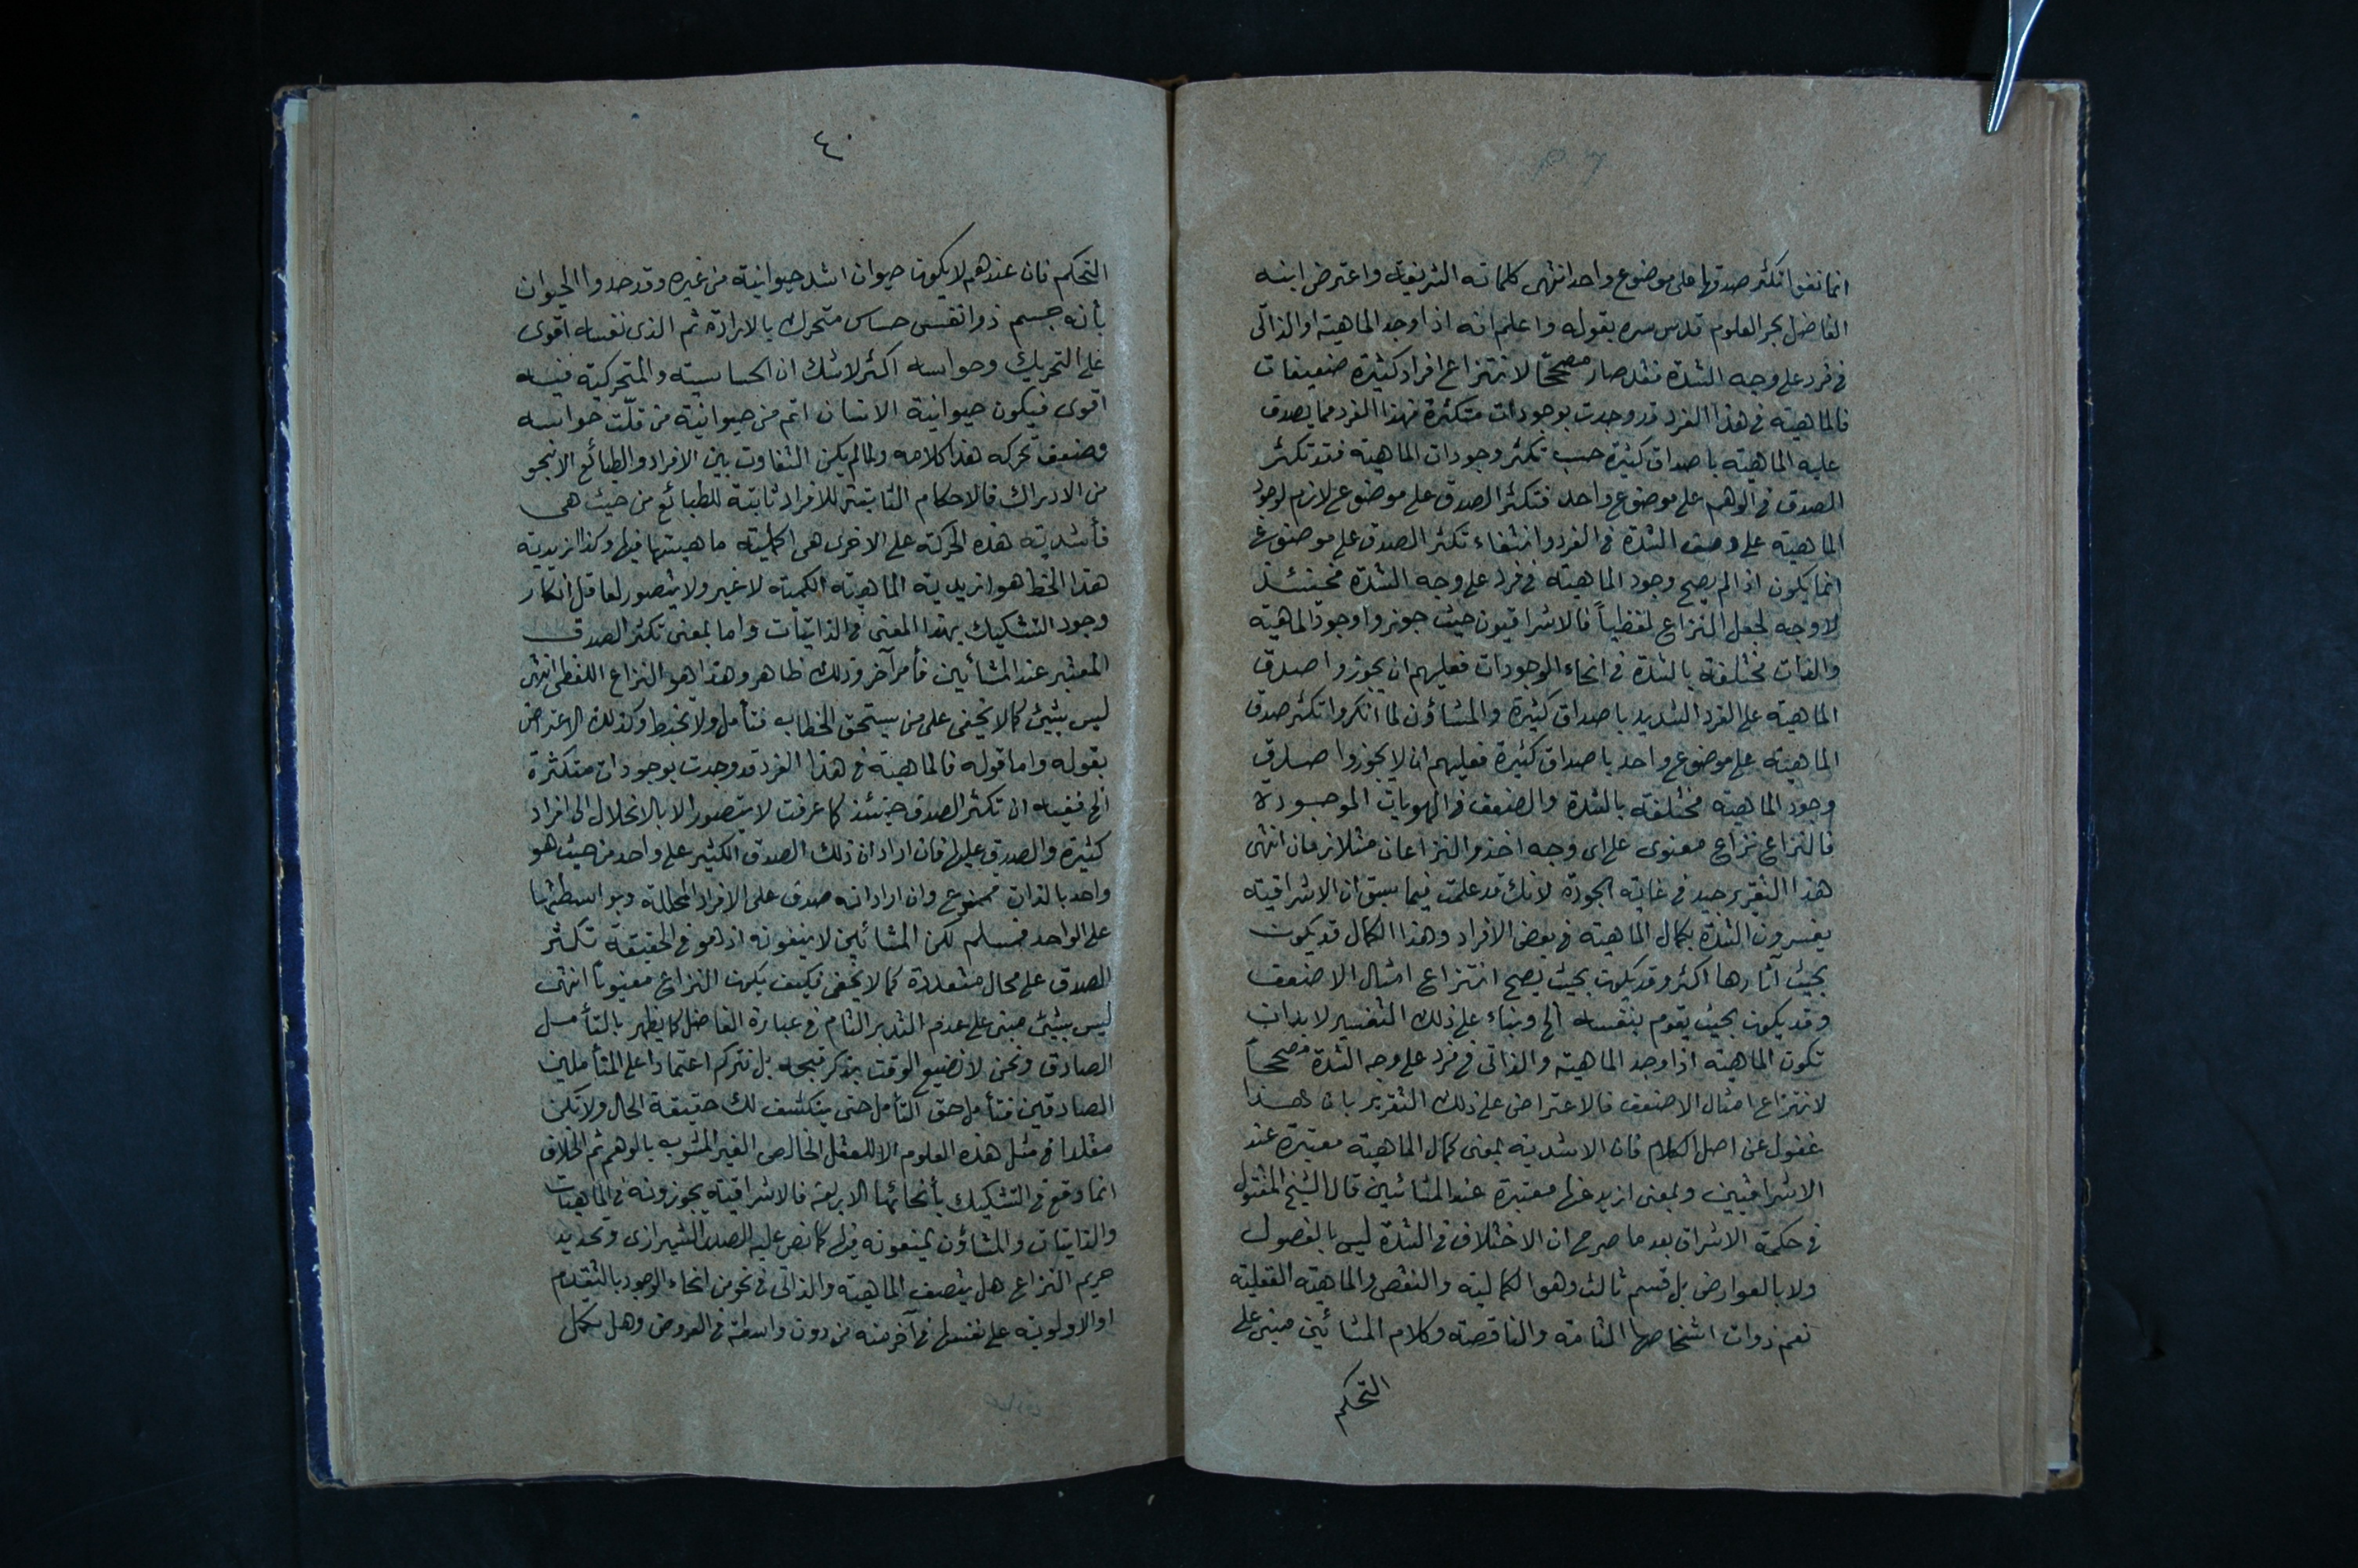 انما نفوا تكثر صدقها على موضوع واحد انتهى كلماته الشريفة واعترض ابنه
الفاضل بحر العلوم قدس سره بقوله واعلم انه اذا وجد الماهية او الذاتى
فى فرد على وجه الشدة فقد صار مصححًا لانتزاع افراد كثيرة ضعيفات
فالماهية فى هذا الفرد قد وجدت بوجودات متكثرة فهذا الفرد مما يصدق
عليه الماهية باصداق كثيرة حسب تكثر وجودات الماهية فقد تكثر
الصدق فى الوهم على موضوع واحد فتكثر الصدق على موضوع لازم لوجود
الماهية على وصف الشدة فى الفرد وانتفاء تكثر الصدق على موضوع
انما يكون اذا لم يصح وجود الماهية فى فرد على وجه الشدة فحينئذ
لا وجه لجعل النزاع لفظياً فالاشراقيون حيث جوزوا وجود الماهية
والذات مختلفة بالشدة فى انحاء الموجودات فعليهم ان يجوزوا صدق
الماهية على الفرد الشديد باصداق كثيرة والمشاؤن لما انكروا تكثر صدق
الماهية على موضوع واحد باصداق كثيرة فعليهم ان لا يجوزوا صدق
وجود الماهية مختلفة بالشدة والضعف فى الهويات الموجودة
فالنزاع نزاع معنوى على اى وجه اخذ والنزاعان متلازمان انتهى
هذا التقرير جيد فى غاية الجودة لانك قد علمت فيما سبق ان الاشراقية
يفسرون الشدة بكمال الماهية فى بعض الافراد وهذا الكمال قد يكون
بحيث آثارها اكثر وقد يكون بحيث يصح انتزاع امثال الاضعف
وقد يكون بحيث يقوم بنفسه الخ وبناء على ذلك التفسير لا بد ان
تكون الماهية اذا وجد الماهية والذاتى فى فرد على وجه الشدة مصححاً
لانتزاع امثال الاضعف فالاعتراض على ذلك التقرير بان هذا
غفول عن اصل الكلام فان الاشدية بمعنى كمال الماهية معتبرة عند
الاشراقيين وبمعنى ازيد عنها معتبرة عند المشائين قال الشيخ المقتول
فى حكمة الاشراق بعد ما صرح ان الاختلاف فى الشدة ليس بالفصول
ولا بالعوارض بل قسم ثالث وهو الكمالية والنقص والماهية العقلية
نعم ذوات اشخاصها التامة والناقصة وكلام المشائين مبنى على
التحكم
٤٠
التحكم فان عندهم لا يكون حيوان اشد حيوانية من غيره وقد حدوا الحيوان
بأنه جسم ذو نفس حساس متحرك بالارادة ثم الذى نفسه اقوى
على التحريك وحواسه اكثر لا شك ان الحساسية والمتحركية فيه
اقوى فيكون حيوانية الانسان اتم من حيوانية من قلّت حواسه
وضعف تحركه هذا كلامه ولما لم يكن التفاوت بين الافراد والطبائع الا بنحو
من الادراك فالاحكام الثابتة للافراد ثابتة للطبائع من حيث هى
فأشدية هذه الحركة على الاخرى هى اكملية ماهيتها فيها وكذا ازيدية
هذا الخط هو ازيدية الماهية الكمية لا غير ولا يتصور لعاقل انكار
وجود التشكيك بهذا المعنى فى الذاتيات واما بمعنى تكثر الصدق
المعتبر عند المشائين فأمر آخر وذلك ظاهر وهذا هو النزاع اللفظى انتهى
ليس بشئ كما لا يخفى على من يستحق الخطاب فتأمل ولا تخبط وكذلك الاعتراض
بقوله واما قوله فالماهية فى هذا الفرد قد وجدت بوجودات متكثرة
الخ ففيه ان تكثر الصدق حينئذ كما عرفت لا يتصور الا بالانحلال الى افراد
كثيرة والصدق عليها فان اراد ان ذلك الصدق الكثير على واحد من حيث هو
واحد بالذات ممنوع وان اراد انه صدق على الافراد المحللة وبواسطتها
على الواحد فمسلم لكن المشائين لا ينفونه اذ هو فى الحقيقة تكثر
الصدق على محال متعددة كما لا يخفى فكيف يكون النزاع معنوياً انتهى
ليس بشئ مبنى على عدم التدبر التام فى عبارة الفاضل كما يظهر بالتأمل
الصادق ونحن لا نضيع الوقت بذكر قبحه بل نتركه اعتمادا على المتأملين
الصادقين فتأمل حق التأمل حتى ينكشف لك حقيقة الحال ولا تكن
مقلدا فى مثل هذه العلوم الا للعقل الخالص الغير المشوب بالوهم ثم الخلاف
انما وقع فى التشكيك بأنحائها الاربعة فالاشراقية يجوزونه فى الماهيات
والذاتيات والمشاؤن يمنعونه فيها كما نص عليه الصدر الشيرازى وتحديد
حريم النزاع هل يتصف الماهية والذاتى فى نحو من انحاء الوجود بالتقدم
او الاولوية على نفسها فى آخر منه من دون واسطة فى العروض وهل تكمل